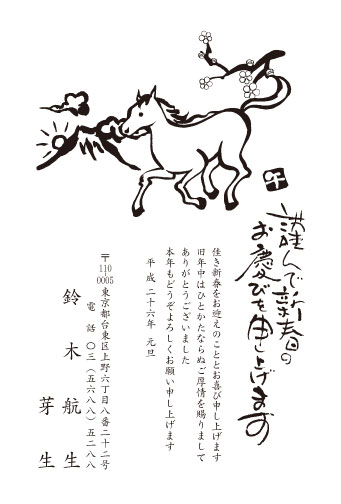 謹んで新春の
お慶びを申し上げます
午
佳き新春をお迎えのこととお喜び申し上げます
旧年中はひとかたならぬご厚情を賜りまして
ありがとうございました
本年もどうぞよろしくお願い申し上げます
平成二十六年 元旦
〒110-0005 東京都台東区上野六丁目八番二十二号
電話 〇三（五六八八）五二八八
鈴木 航生
芽生